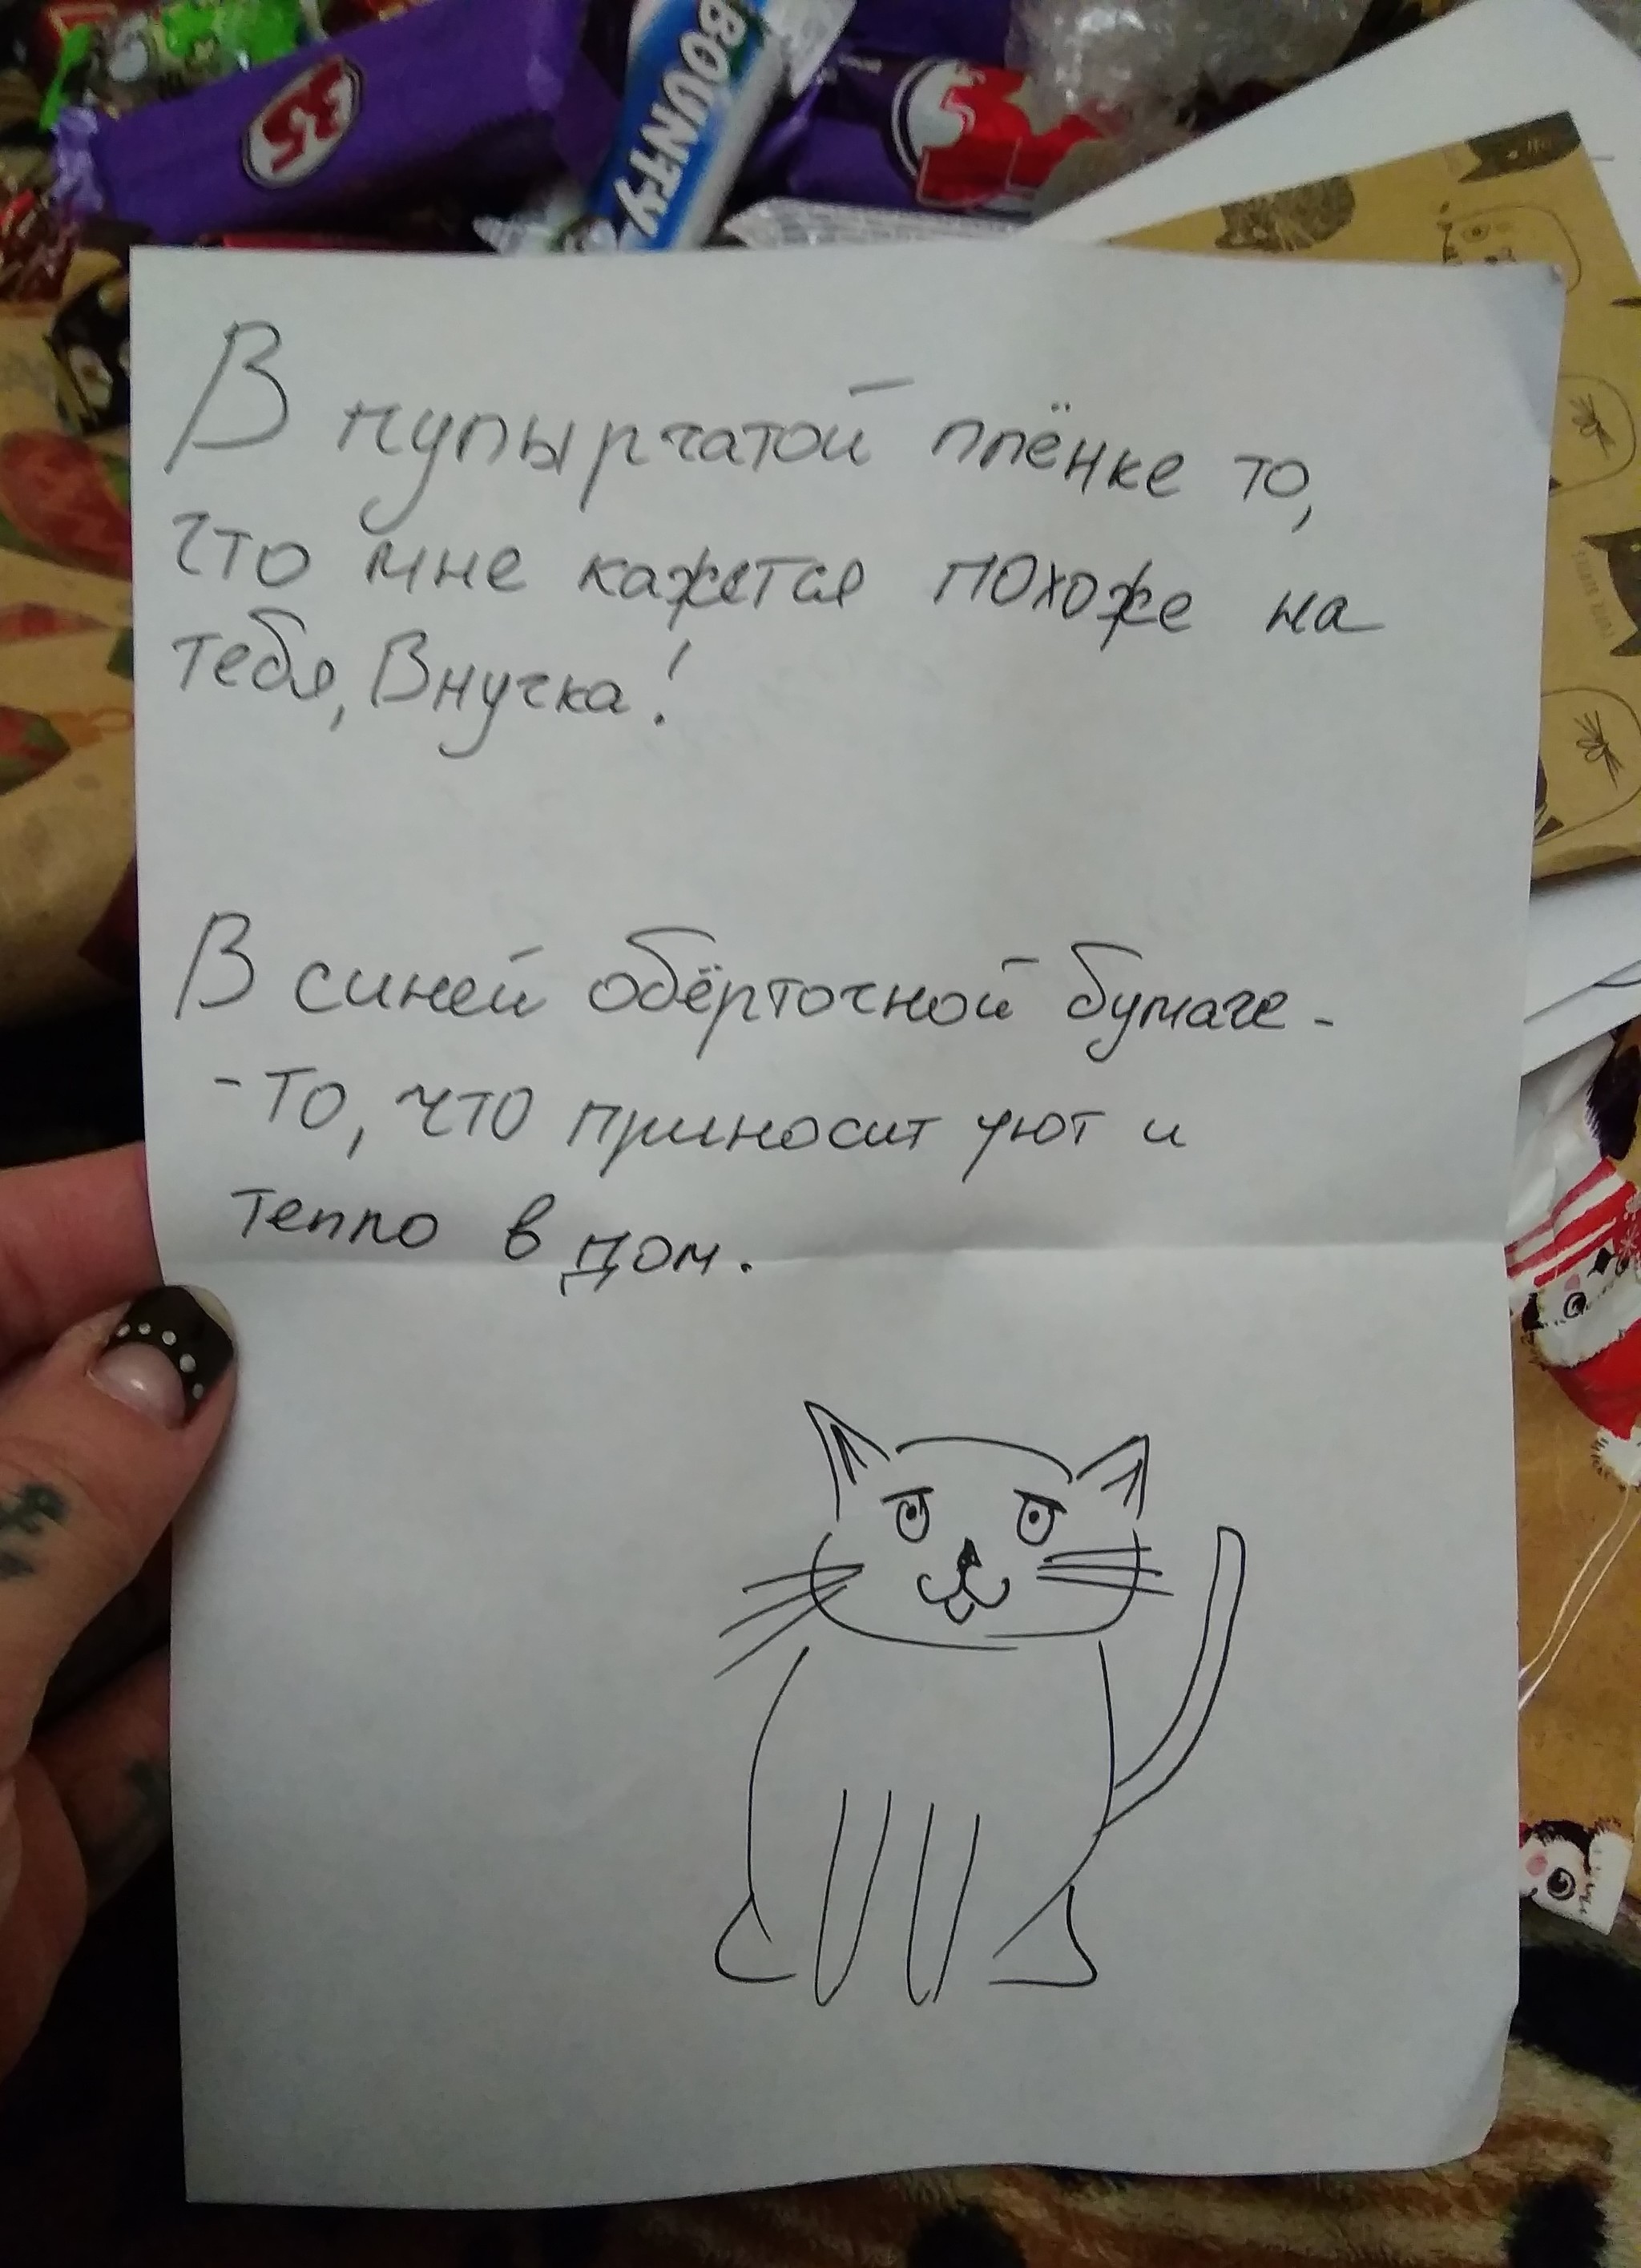 35
BOUNTY
В пупырчатой плёнке то,
что мне кажется похоже на
тебя, Внучка!
В синей обёрточной бумаге -
- то, что приносит уют и
тепло в дом.